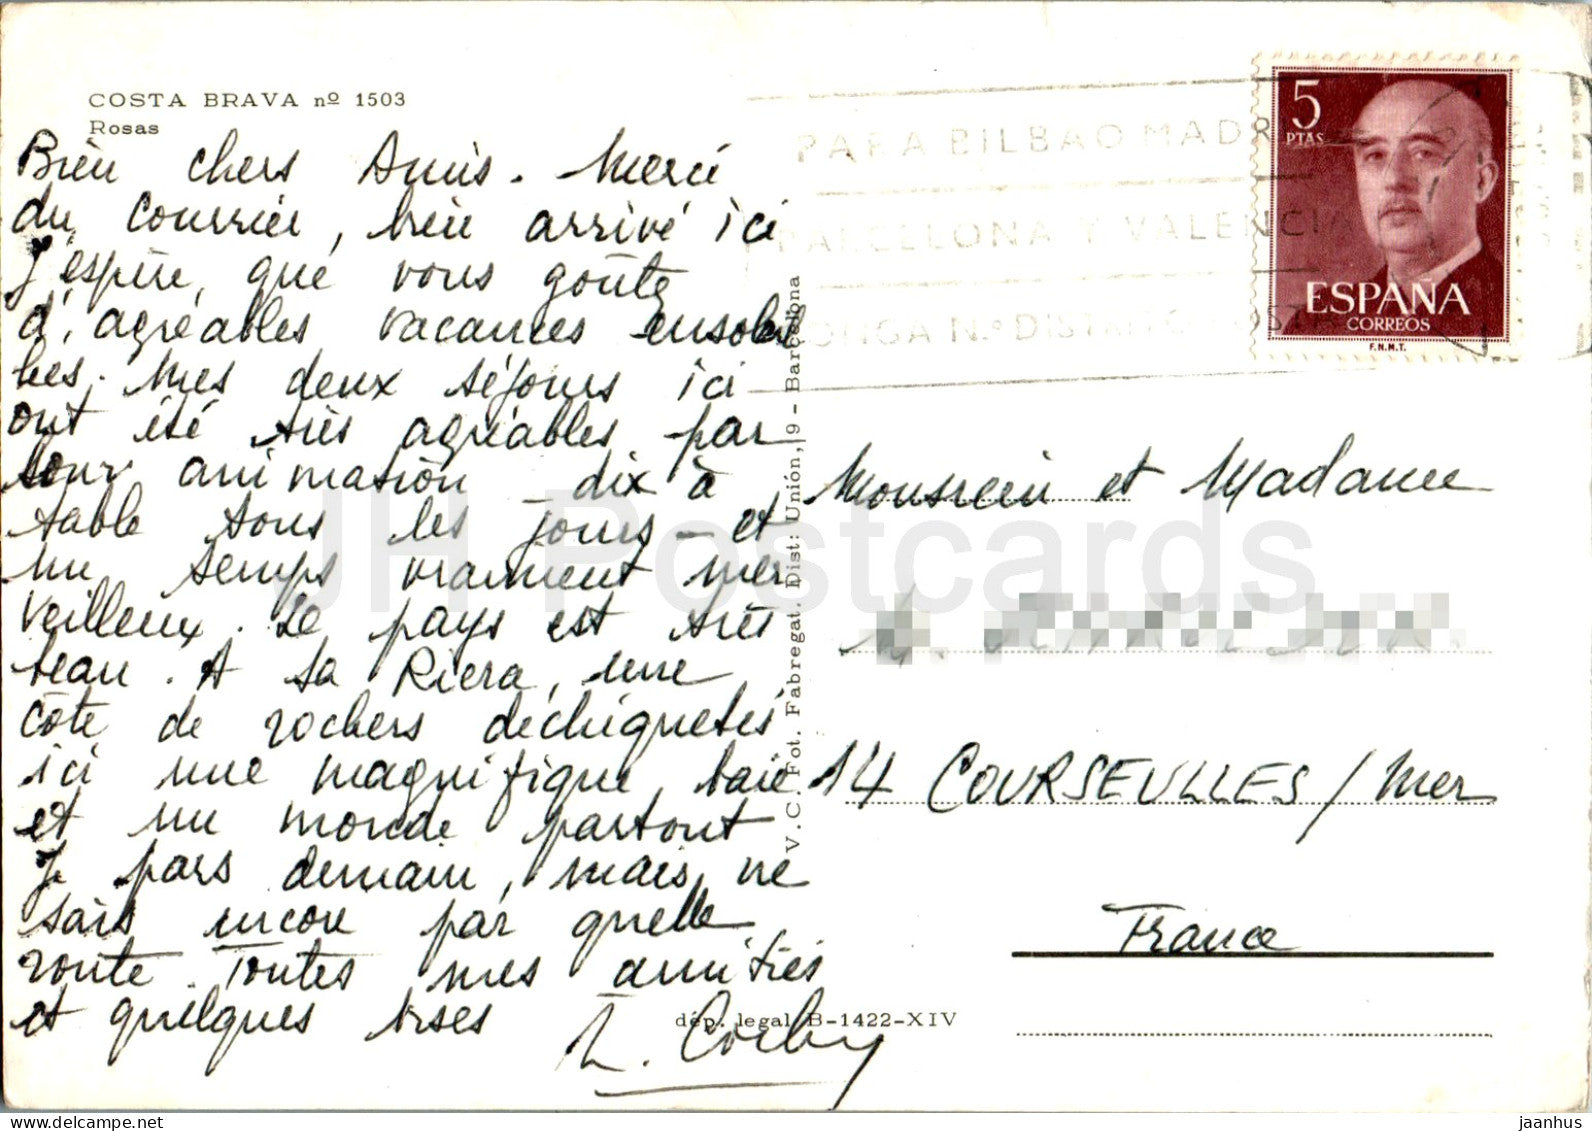 COSTA BRAVA nº 1503
Rosas
Bien chers Amis. Merci
du courrier, bien arrivé ici
J'espère, que vous goûtez
d'agréables vacances ensoleil
lées. Mes deux séjours ici
ont été très agréables par
leur animation – dix à
table tous les jours – et
un temps vraiment mer
veilleux. Le pays est très
beau. A la Riera, une
côte de rochers déchiquetés,
ici une magnifique baie
et un monde partout
Je pars demain, mais ne
sais encore par quelle
route. Toutes mes amitiés
et quelques bises
L. Corby
dép. legal B-1422-XIV
V. C. Fot. Fabregat. Dist: Unión, 9 - Barcelona
PARA BILBAO MADRI
BARCELLONA Y VALENCIA
PONGA N.º DISTRITO POSTAL
5
PTAS
ESPAÑA
CORREOS
F.N.M.T.
Monsieur et Madame
14 COURSEULLES / Mer
France
JH Postcards
jaanhus